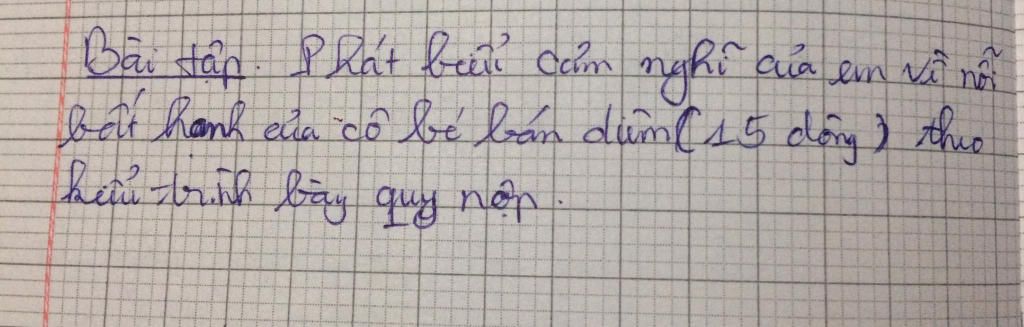 Bài tập. Phát biểu cảm nghĩ của em về nỗi
bất hạnh của cô bé bán diêm (15 dòng) theo
kiểu trình bày quy nạp.